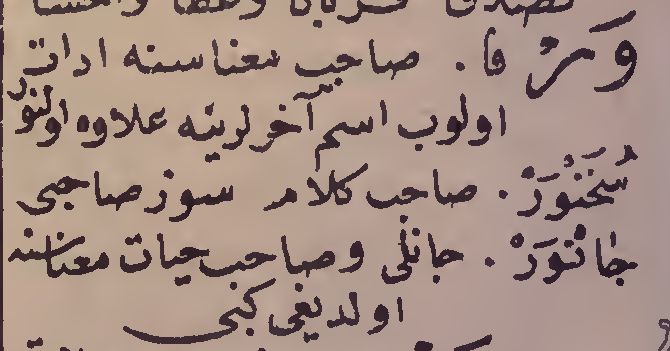 وَرْ فا. صاحب معناسنه ادات
اولوب اسم آخرلرينه علاوه اولنور
سُخَنْوَرْ. صاحب كلام سوز صاحبى
جانْوَرْ. جانلى وصاحب حيات معناسنه
اولديغى كبى